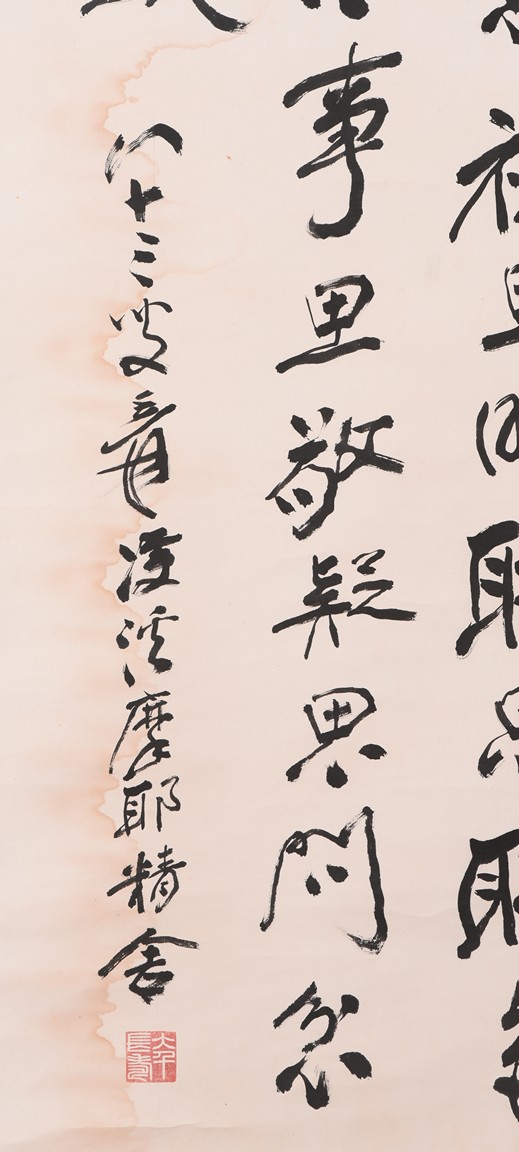 視思明聽思聰
事思敬疑思問忿
八十三叟爰雙溪摩耶精舍
大千長壽